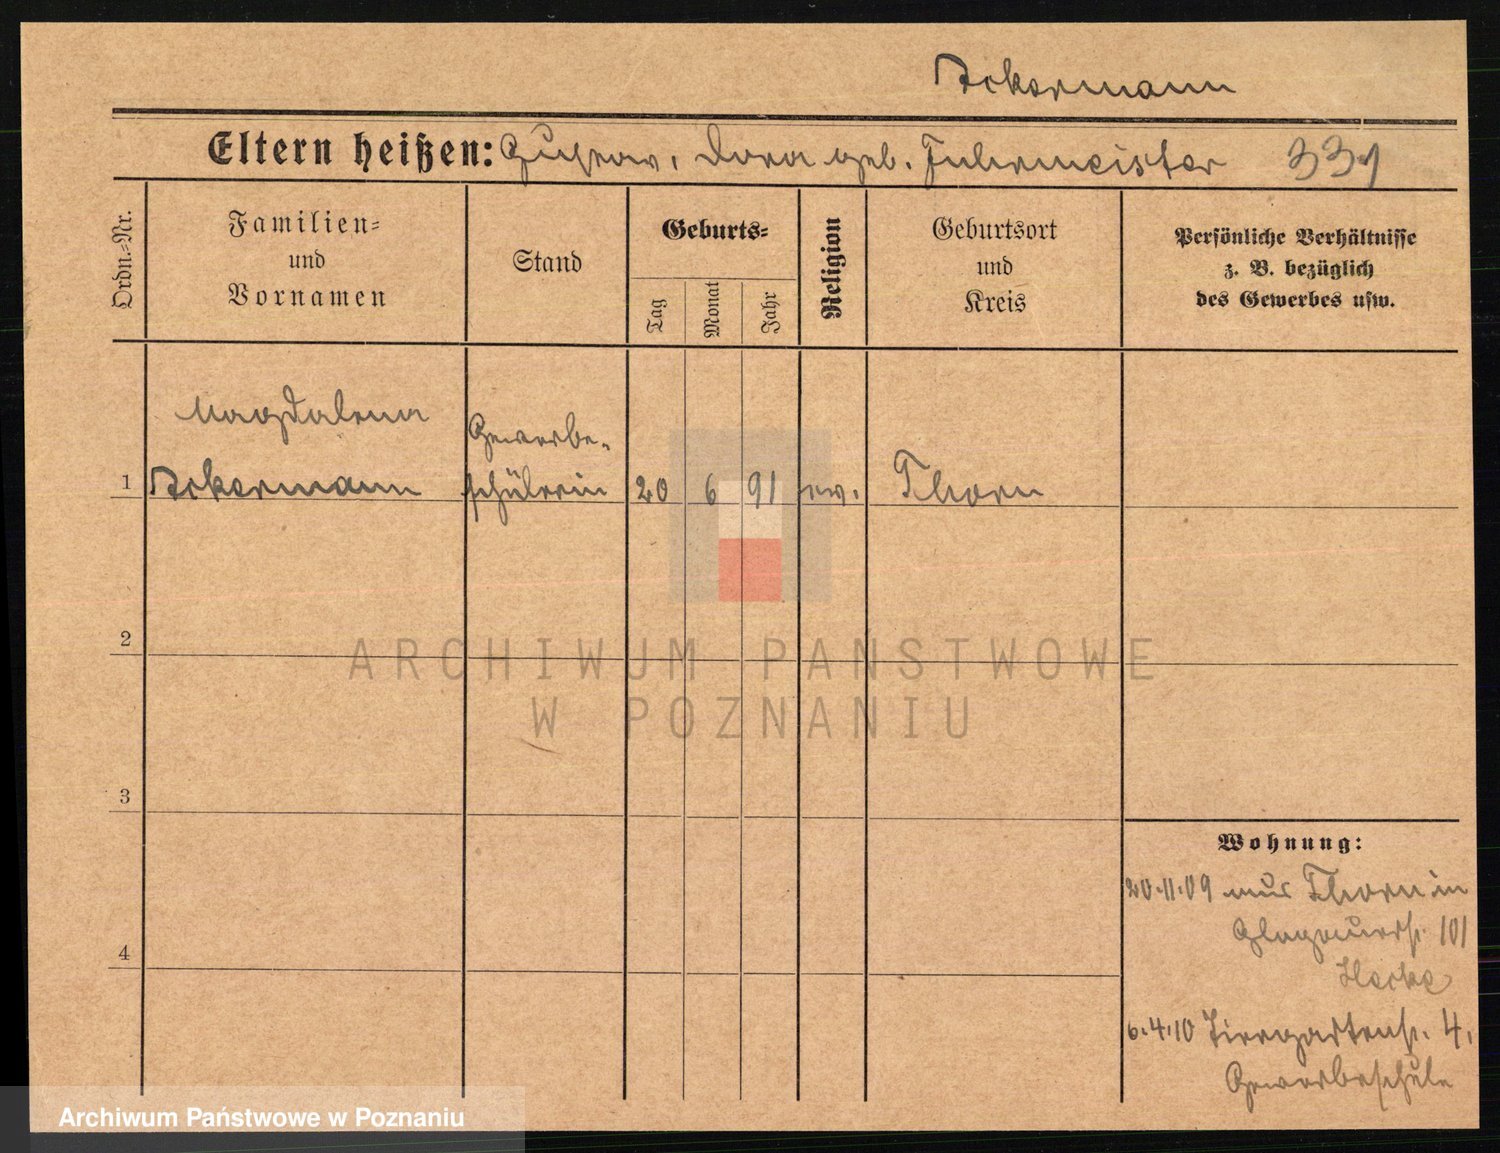 Ackermann
Eltern heißen: Gustav, Dora geb. Fuhrmeister 331
Ordn.=Nr.
Familien=
und
Vornamen
Stand
Geburts=
Tag
Monat
Jahr
Religion
Geburtsort
und
Kreis
Persönliche Verhältnisse
z. B. bezüglich
des Gewerbes usw.
Magdalena
Gewerbe-
1 Ackermann schülerin 20 6 91 ev. Thorn
2
ARCHIWUM PAŃSTWOWE
W POZNANIU
3
Wohnung:
20.11.09 aus Thorn in
101
4
6.4.10 Tiergartenstr. 4,
Gewerbeschule
Archiwum Państwowe w Poznaniu